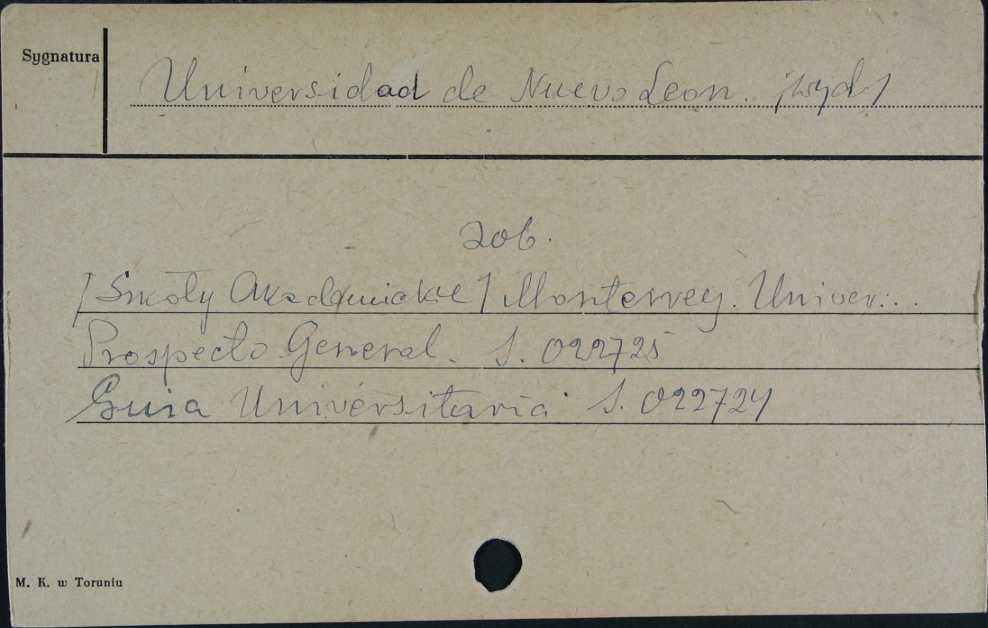 Sygnatura
Universidad de Nuevo Leon. /wyd/
zob.
/Szkoły Akademickie/ Monterrey. Univer...
Prospecto General. S. 022725
Guia Universitaria S. 022724
M. K. w Toruniu